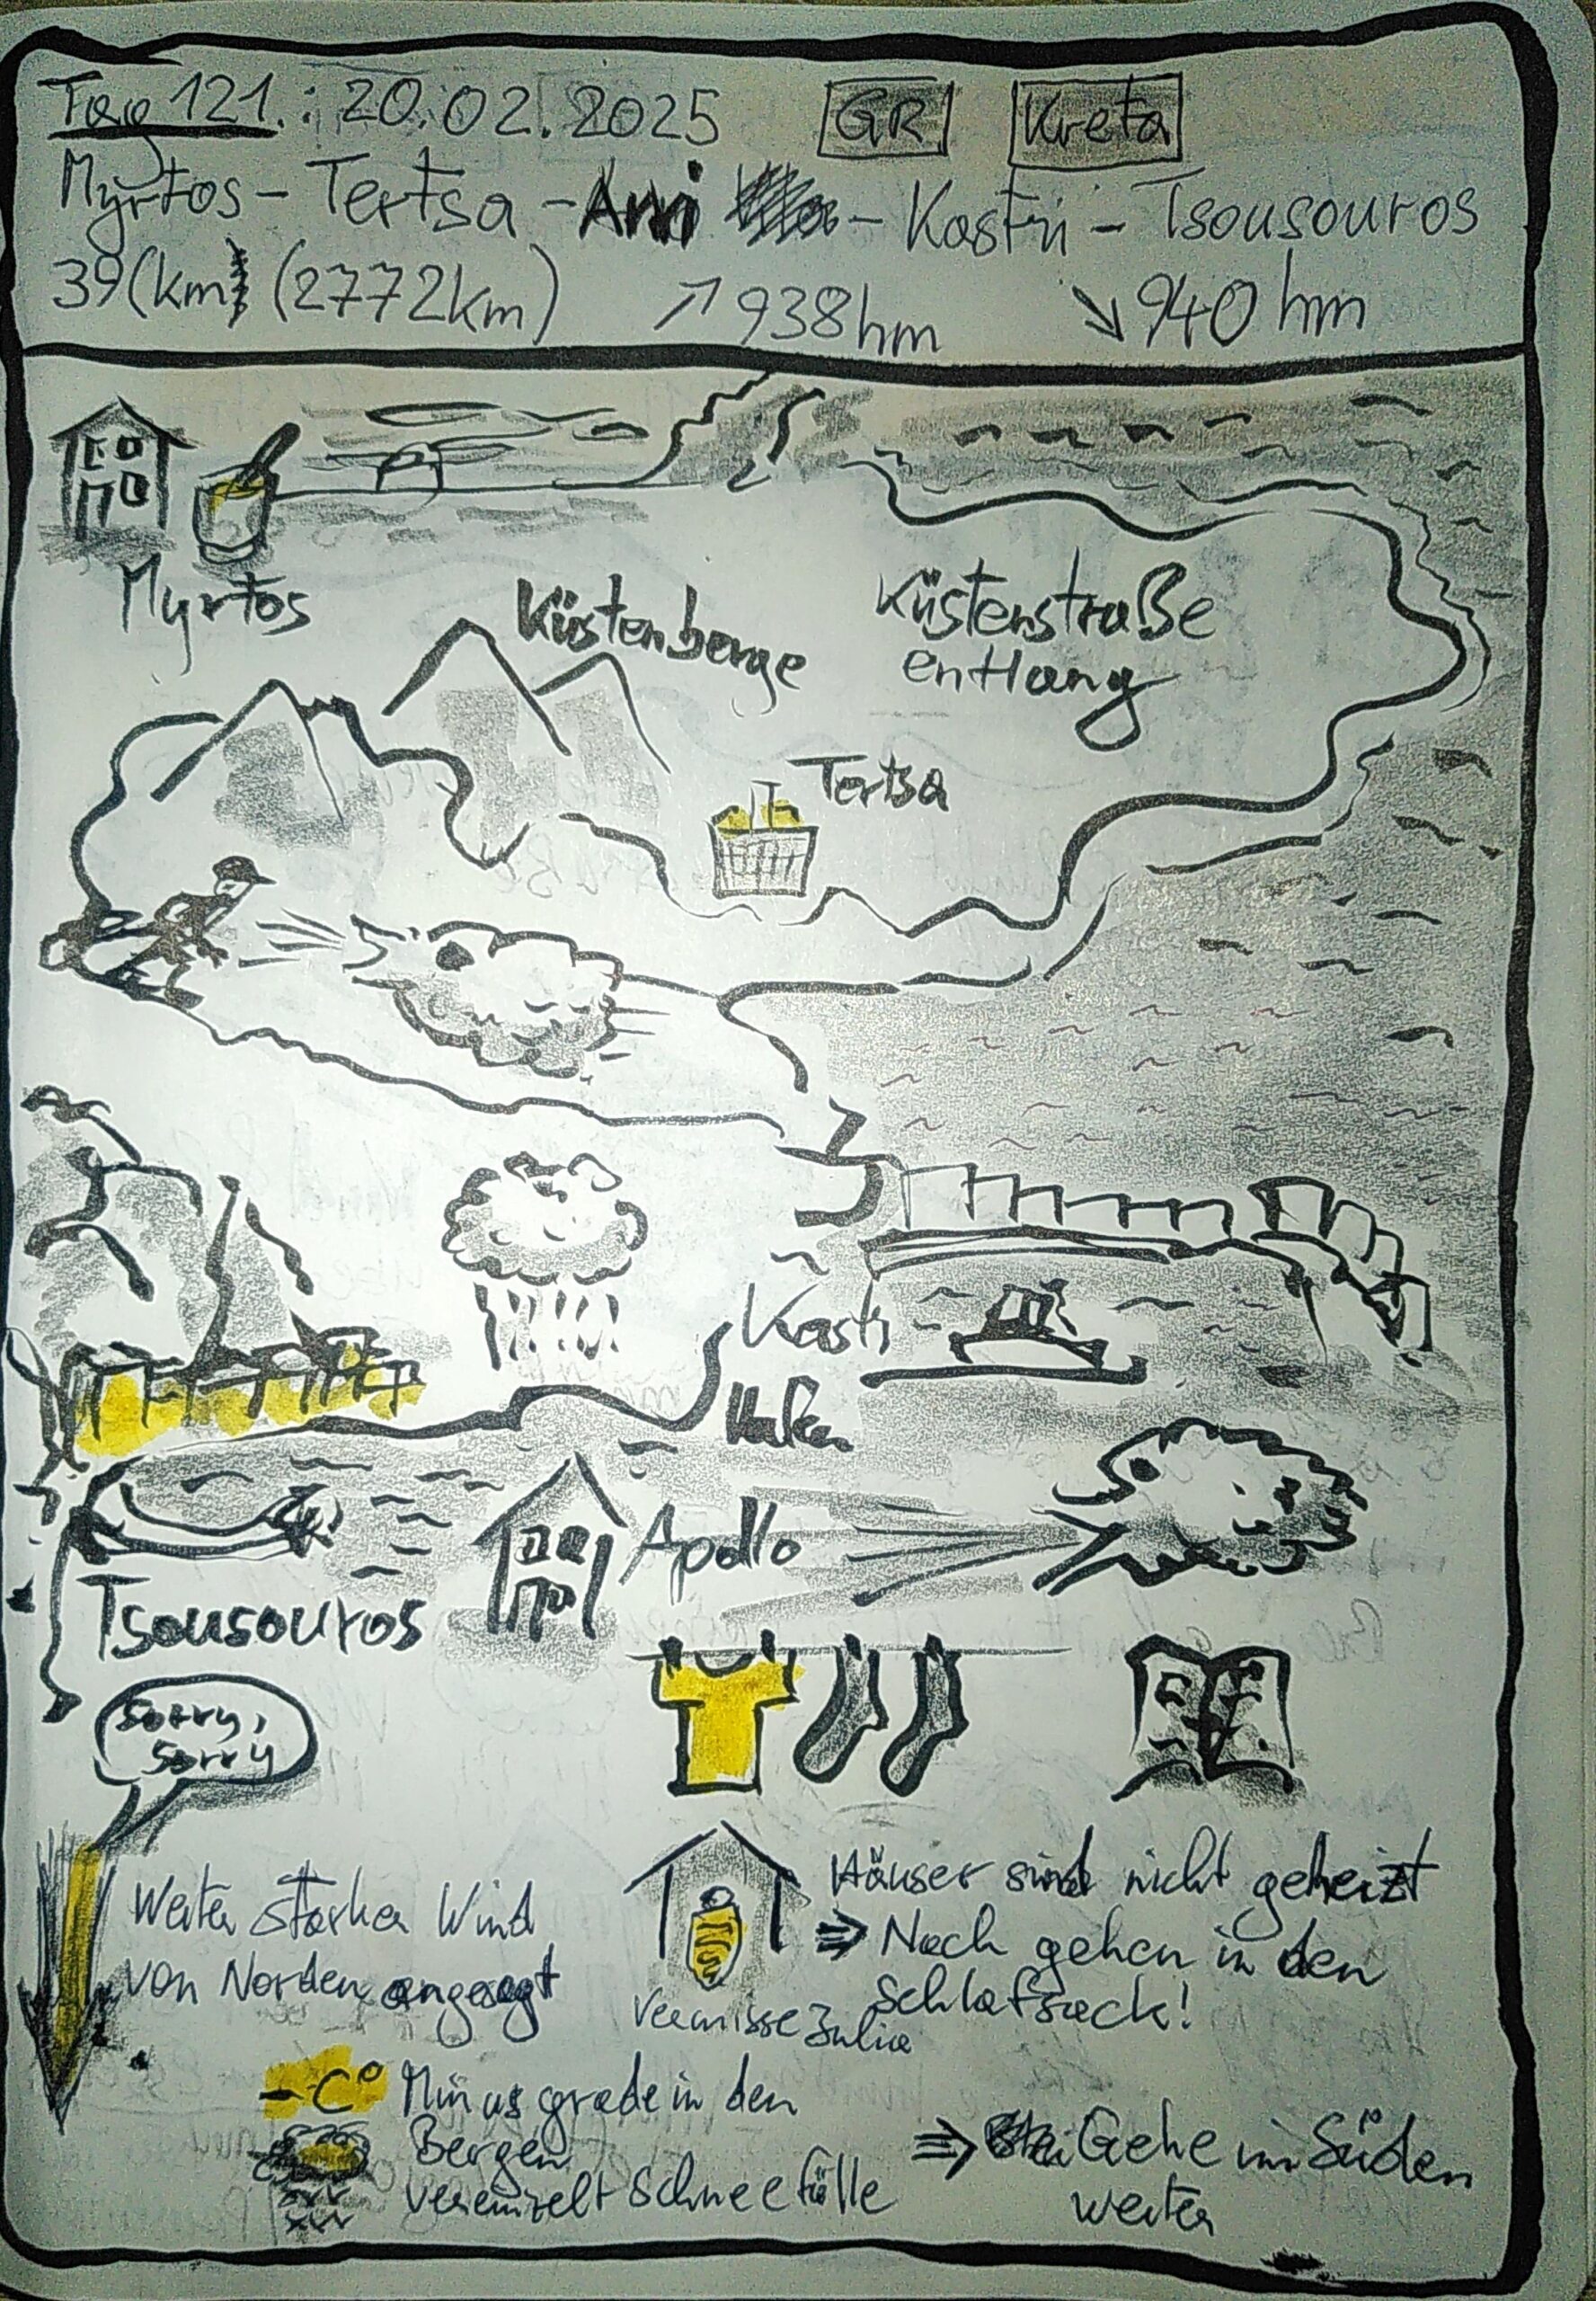 Tag 121.: 20.02.2025 GR Kreta
Myrtos - Tertsa - Arvi - Kastri - Tsousouros
39(km) (2772km) ↗ 938hm ↘ 940 hm
Myrtos
Küstenberge
Küstenstraße
entlang
Tertsa
Kastri
Hafen
Apollo
Tsousouros
Sorry,
Sorry
Weiter starker Wind
von Norden angesagt
Häuser sind nicht geheizt
⇒ Nach gehen in den
Schlafsack!
Vermisse Julia
-C° Minusgrade in den
Bergen
vereinzelt Schneefälle
⇒ Gehe im Süden
weiter